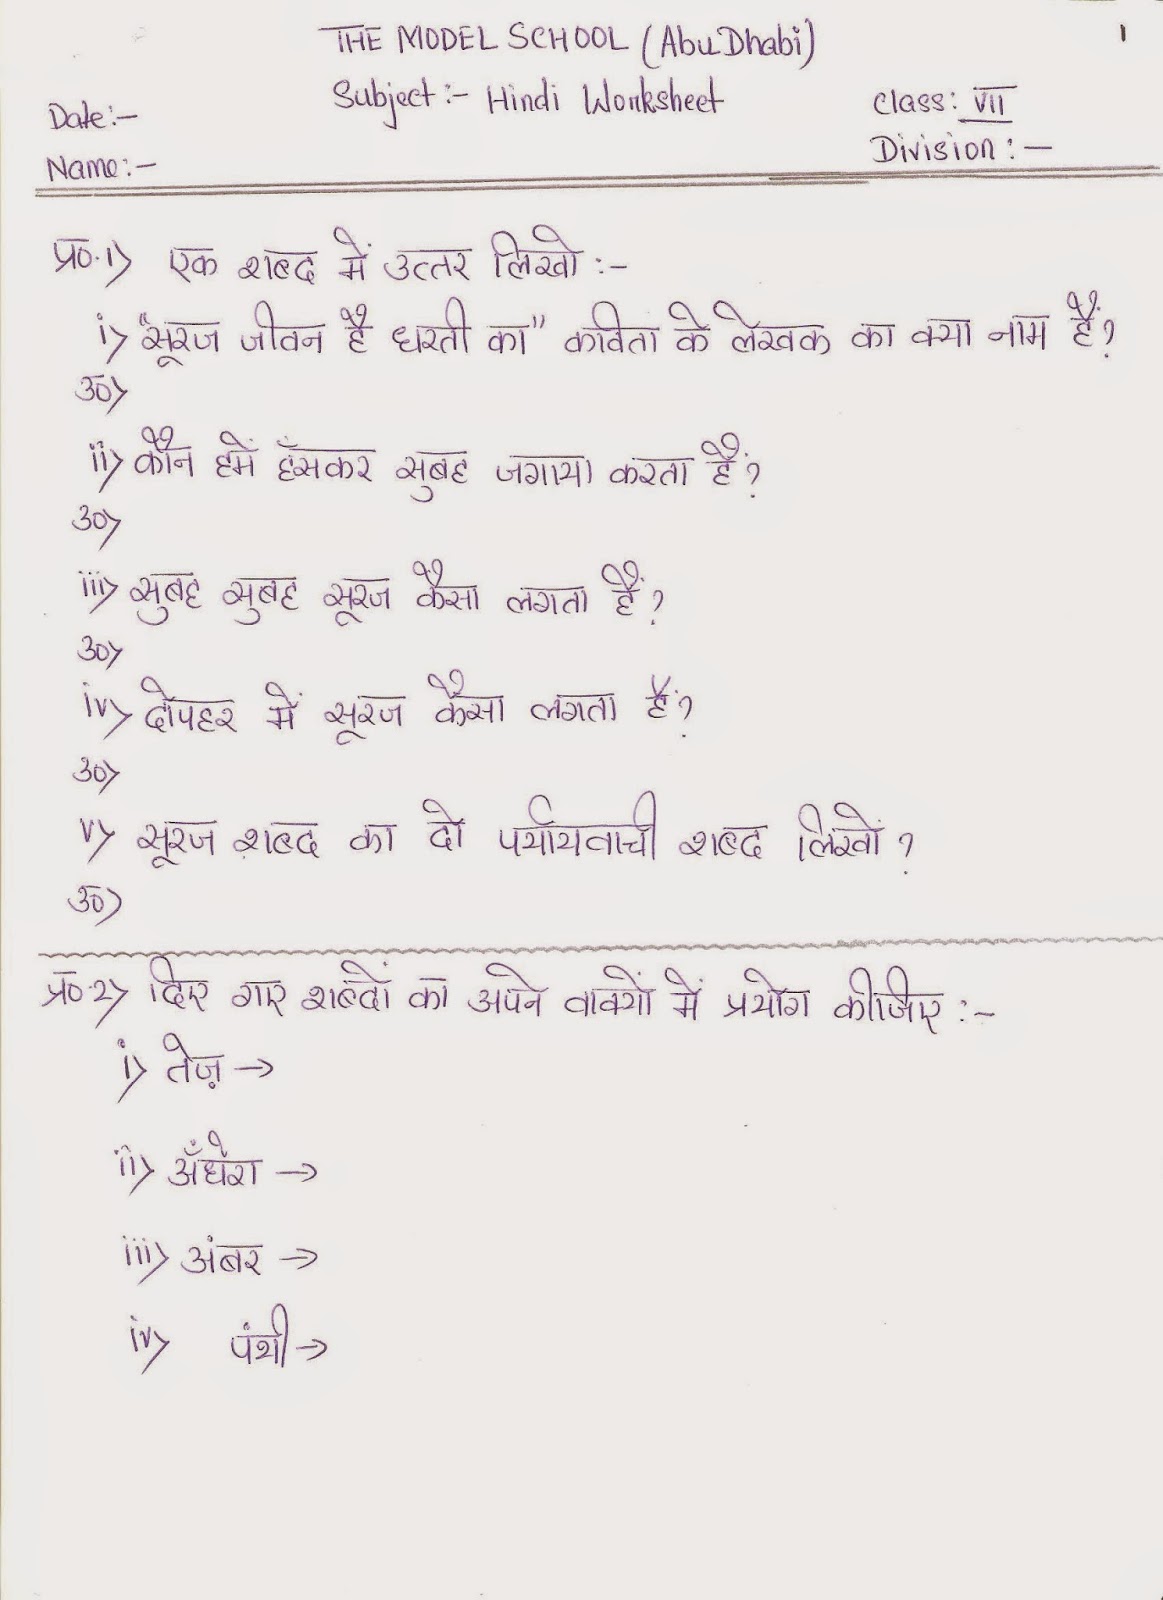 1
THE MODEL SCHOOL (Abu Dhabi)
Subject:- Hindi Worksheet
Date:-
Class: VII
Name:-
Division:-
प्र०.1) एक शब्द में उत्तर लिखो :-
i) "सूरज जीवन है धरती का" कविता के लेखक का क्या नाम हैं?
उ०)
ii) कौन हमें हँसकर सुबह जगाया करता हैं?
उ०)
iii) सुबह सुबह सूरज कैसा लगता हैं?
उ०)
iv) दोपहर में सूरज कैसा लगता हैं?
उ०)
v) सूरज शब्द का दो पर्यायवाची शब्द लिखों?
उ०)
प्र०.2) दिए गए शब्दों का अपने वाक्यों में प्रयोग कीजिए :-
i) तेज़ →
ii) अँधेरा →
iii) अंबर →
iv) पंथी →